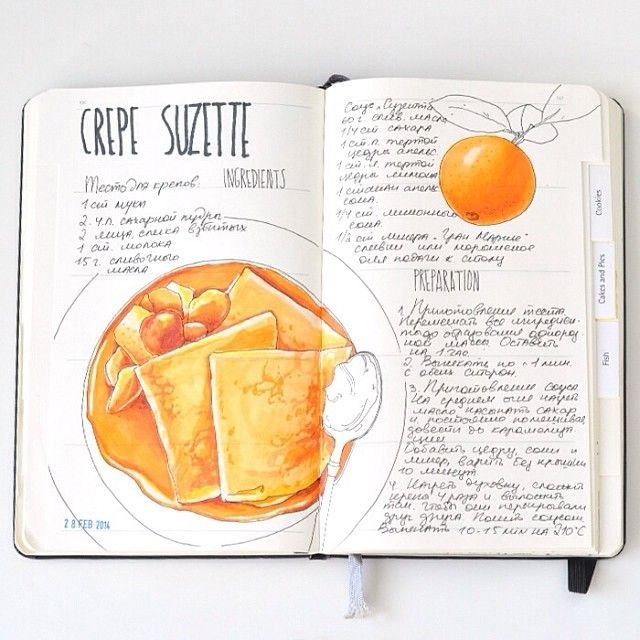 CREPE SUZETTE
INGREDIENTS
Тесто для крепов:
1 ст муки
2 ч.л. сахарной пудры
2 яйца, слегка взбитых
1 ст. молока
15 г. сливочного
масла
28 FEB 2014
Соус „Сюзетта“
60 г слив. масла
1/4 ст сахара
1 ст. л. тертой
цедры апельс.
1 ст. л. тертой
цедры лимона
1 стакан апельс
сока.
1/4 ст. лимонного
сока.
1/2 ст ликера „Гран Марнье“
сливки или мороженое
для подачи к столу
PREPARATION
1. Приготовление теста
Перемешать все ингредиен-
ты до образования однород
ной массы Оставить
на 1 час
2. Выпекать по ~1 мин.
с обеих сторон.
3. Приготовление соуса
На среднем огне нагреть
масло, насыпать сахар
и, постоянно помешивая,
довести до карамелиза
ции
Добавить цедру, соки и
ликер, варить без крышки
10 минут
4. Нагреть духовку, сложить
крепы 4 раза и выложить
так, чтобы они перекрывали
друг друга. Полить соусом.
Выпекать 10-15 мин на 210°C
Cookies
Cakes and Pies
Fish